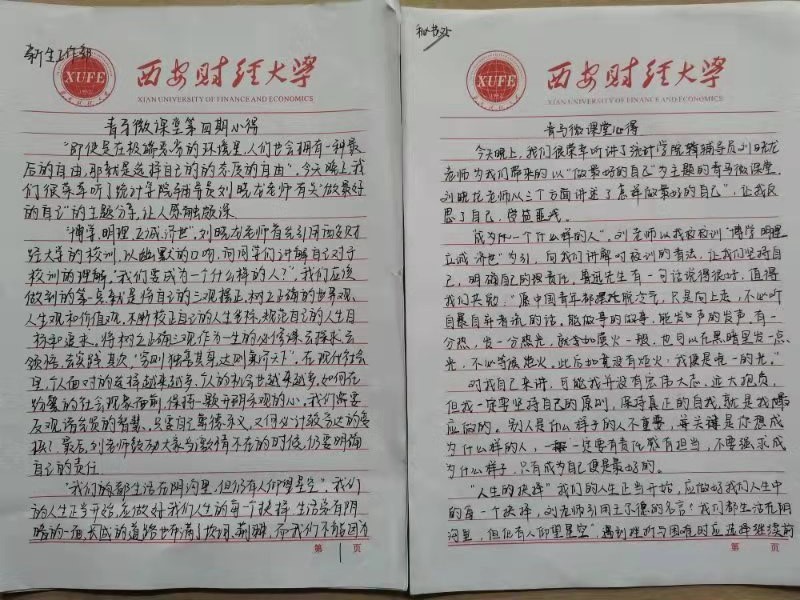 新生工作部
XUFE
西安财经大学
XIAN UNIVERSITY OF FINANCE AND ECONOMICS
青马微课堂第四期心得
"即使是在极端恶劣的环境里,人们也会拥有一种最
后的自由,那就是选择自己的态度的自由"。今天晚上,我
们很荣幸听了统计学院辅导员刘晓龙老师有关"做最好
的自己"的主题分享,让人质触颇深
"博学,明理,立诚,济世",刘晓龙老师首先引用西安财
经大学的校训,以幽默的口吻,向同学们讲解自己对于
校训的理解,"我们要成为一个什么样的人?",我们应该
做到的第一点就是将自己的三观摆正,树立正确的世界观、
人生观和价值观,不断校正自己的人生坐标,规范自己的人生目
标和追求,将树立正确三观作为一生的必修课去探求去
领悟,去实践,其次,"穷则独善其身,达则兼济天下",在现代社会
里,个人面对的选择越来越多,个人的机会也越来越多,如何在
纷繁的社会现象面前,保持一颗开朗乐观的心,我们需要
最后,刘老师鼓励大家当激情不在的时候,仍要明确
自己的责任
"我们都生活在阴沟里,但仍有人仰望星空",我们
的人生正当开始,应做好我们人生的每一个抉择,生活总有阴
暗的一面,长成的道路也布满了坎坷、荆棘,而我们不能因为
第 1 页
秘书处
XUFE
西安财经大学
XIAN UNIVERSITY OF FINANCE AND ECONOMICS
青马微课堂心得
今天晚上,我们很荣幸听讲了统计学院辅导员刘晓龙
老师为我们带来的以"做最好的自己"为主题的青马微课堂,
刘晓龙老师从三个方面讲述了怎样做最好的自己",让我反
思了自己,受益匪浅。
"成为一个什么样的人",刘老师以我校校训"博学 明理
立诚 济世"为引,向我们讲解对校训的看法,让我们坚持自
己,明确自己的责任,鲁迅先生有一句话说得很好,值得
我们共勉:"愿中国青年都摆脱冷气,只是向上走,不必听
自暴自弃者流的话,能做事的做事,能发声的发声,有一
分热,发一分热光,就令如萤火一般,也可以在黑暗里发一点
光,不必等候炬火。此后如竟没有炬火,我便是唯一的光。"
对我自己来讲,可能我并没有宏伟大志,远大抱负,
但我一定要坚持自己的原则,保持真正的自我,就是我
应做的。别人是什么样子的人不重要,并关键是你想成
为什么样的人,一定要有责任 能有担当,不要强求成
为什么样子,只有成为自己便是最好的。
"人生的抉择"我们的人生正当开始,应做好我们人生中
的每一个抉择,刘老师引用王尔德的名言:"我们都生活在阴
沟里,但仍有人仰望星空",遇到挫折与困难时应选择继续前
第 页